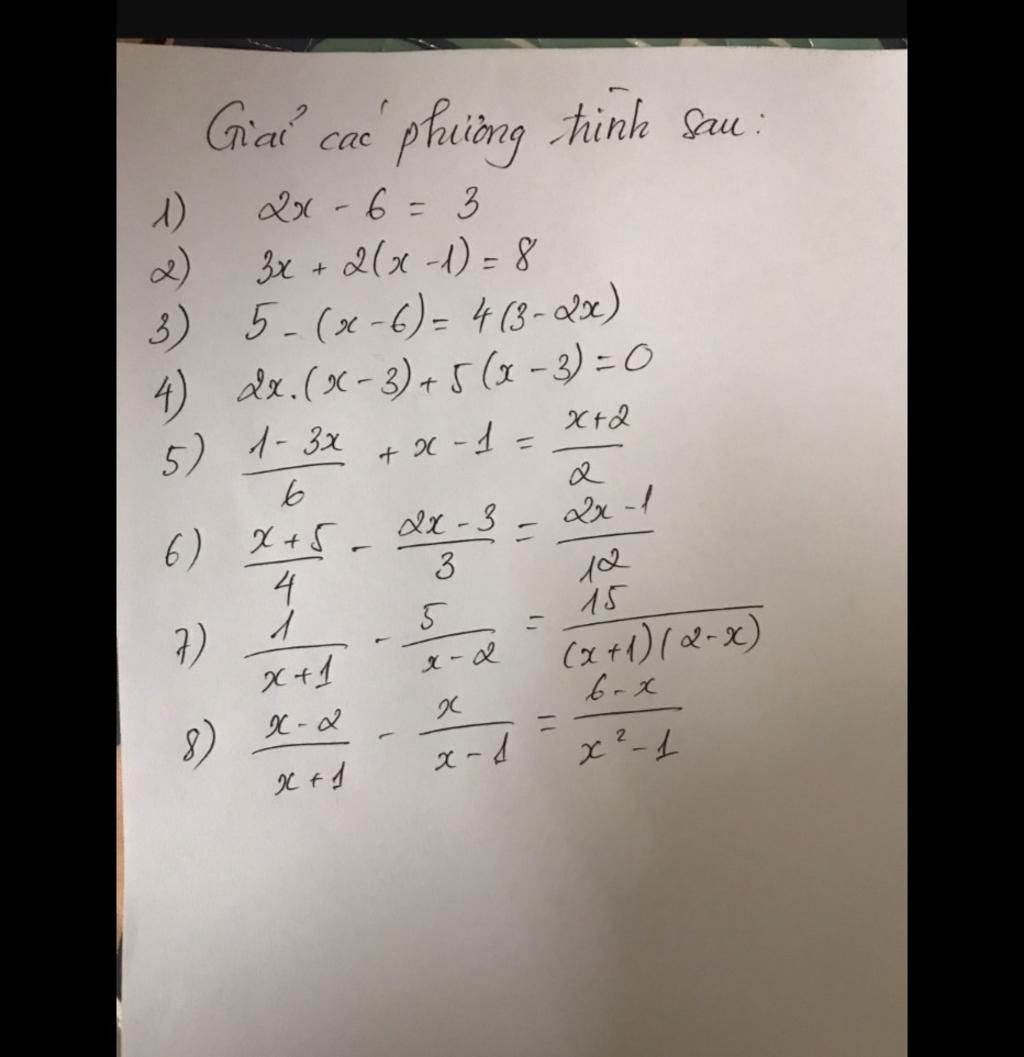 Giải các phương trình sau:
1) 2x - 6 = 3
2) 3x + 2(x - 1) = 8
3) 5 - (x - 6) = 4(3 - 2x)
4) 2x.(x - 3) + 5(x - 3) = 0
5) (1 - 3x)/6 + x - 1 = (x + 2)/2
6) (x + 5)/4 - (2x - 3)/3 = (2x - 1)/12
7) 1/(x + 1) - 5/(x - 2) = 15/((x + 1)(2 - x))
8) (x - 2)/(x + 1) - x/(x - 1) = (6 - x)/(x² - 1)